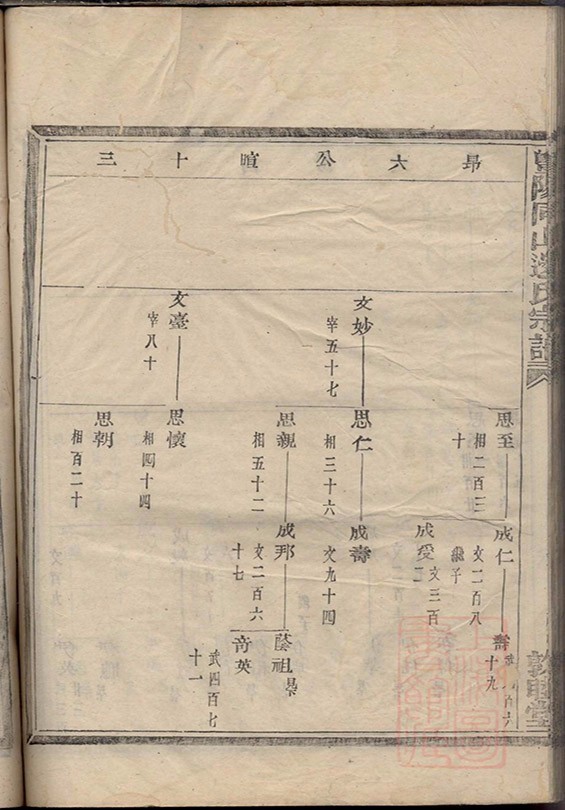 暨陽同山邊氏宗譜
敦睦堂
昂六公暄十三
思至
相二百三
十
成仁
文二百八
繼子
壽
十九
成愛
文三百
二
文妙
宰五十七
思仁
相三十六
成壽
文九十四
思親
相五十二
成邦
文二百六
十七
蔭祖
奇英
武四百七
十一
文臺
宰八十
思懷
相四十四
思朝
相百二十